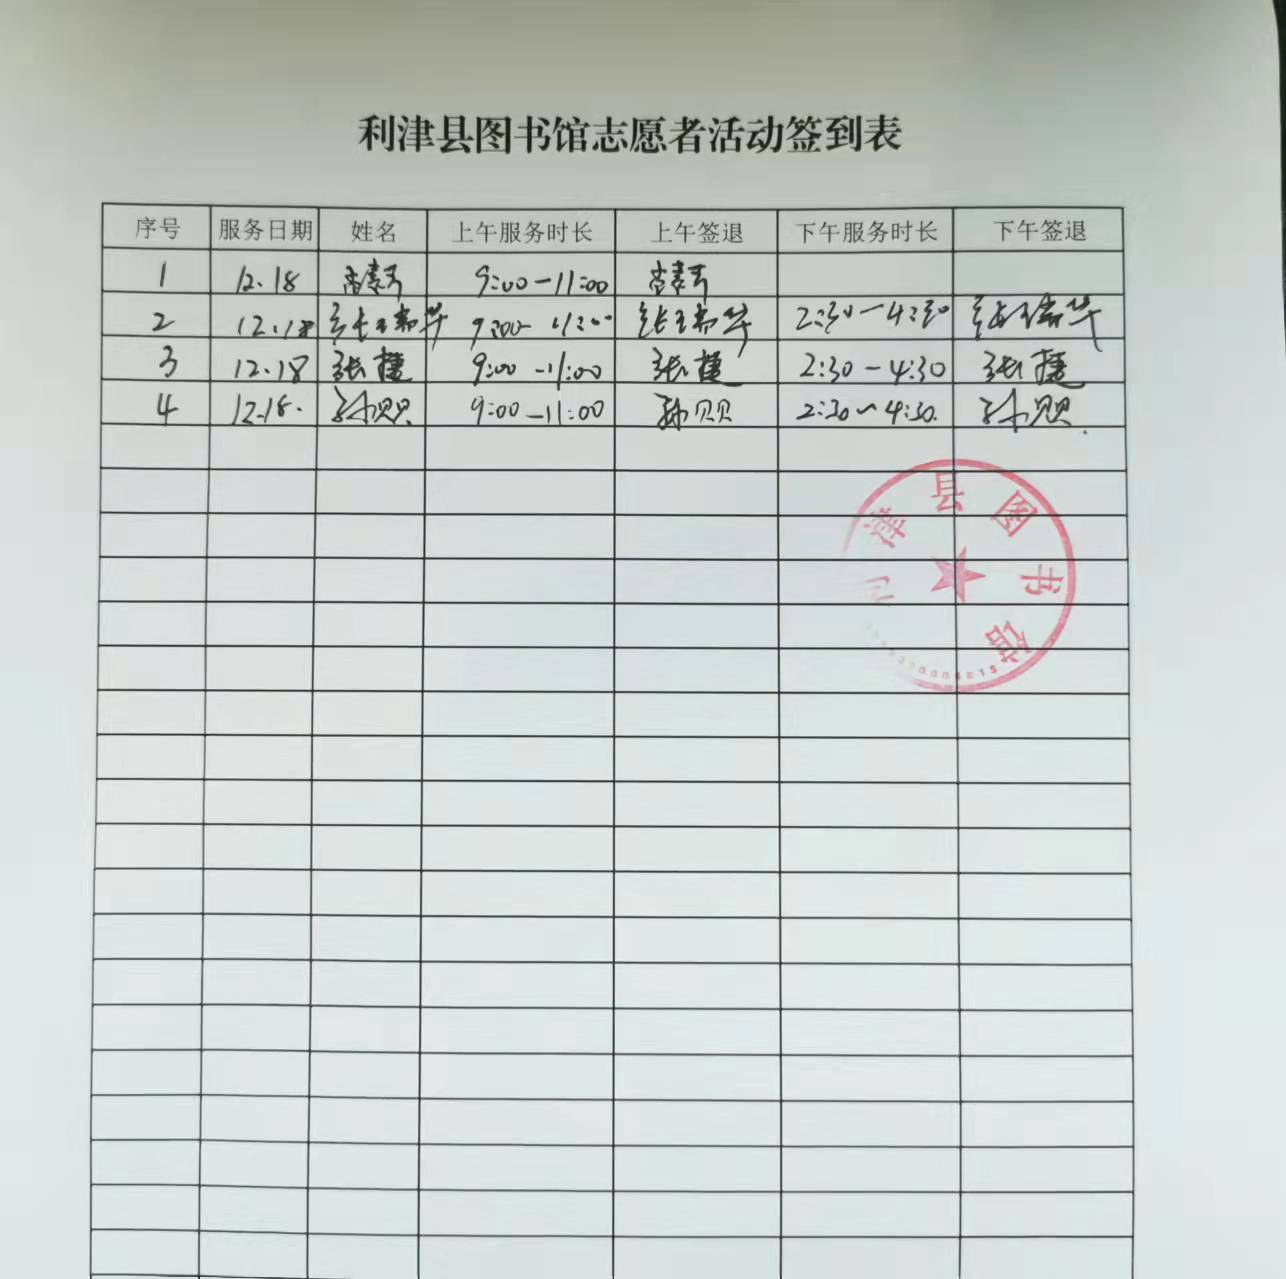 利津县图书馆志愿者活动签到表
序号 服务日期 姓名 上午服务时长 上午签退 下午服务时长 下午签退
1 12.18 9:00-11:00
2 12.18 9:00- 11:00 2:30-4:30
3 12.18 张捷 9:00-11:00 张捷 2:30-4:30 张捷
4 12.18. 孙贝贝 9:00-11:00 孙贝贝 2:30-4:30. 孙贝贝.
利津县图书馆